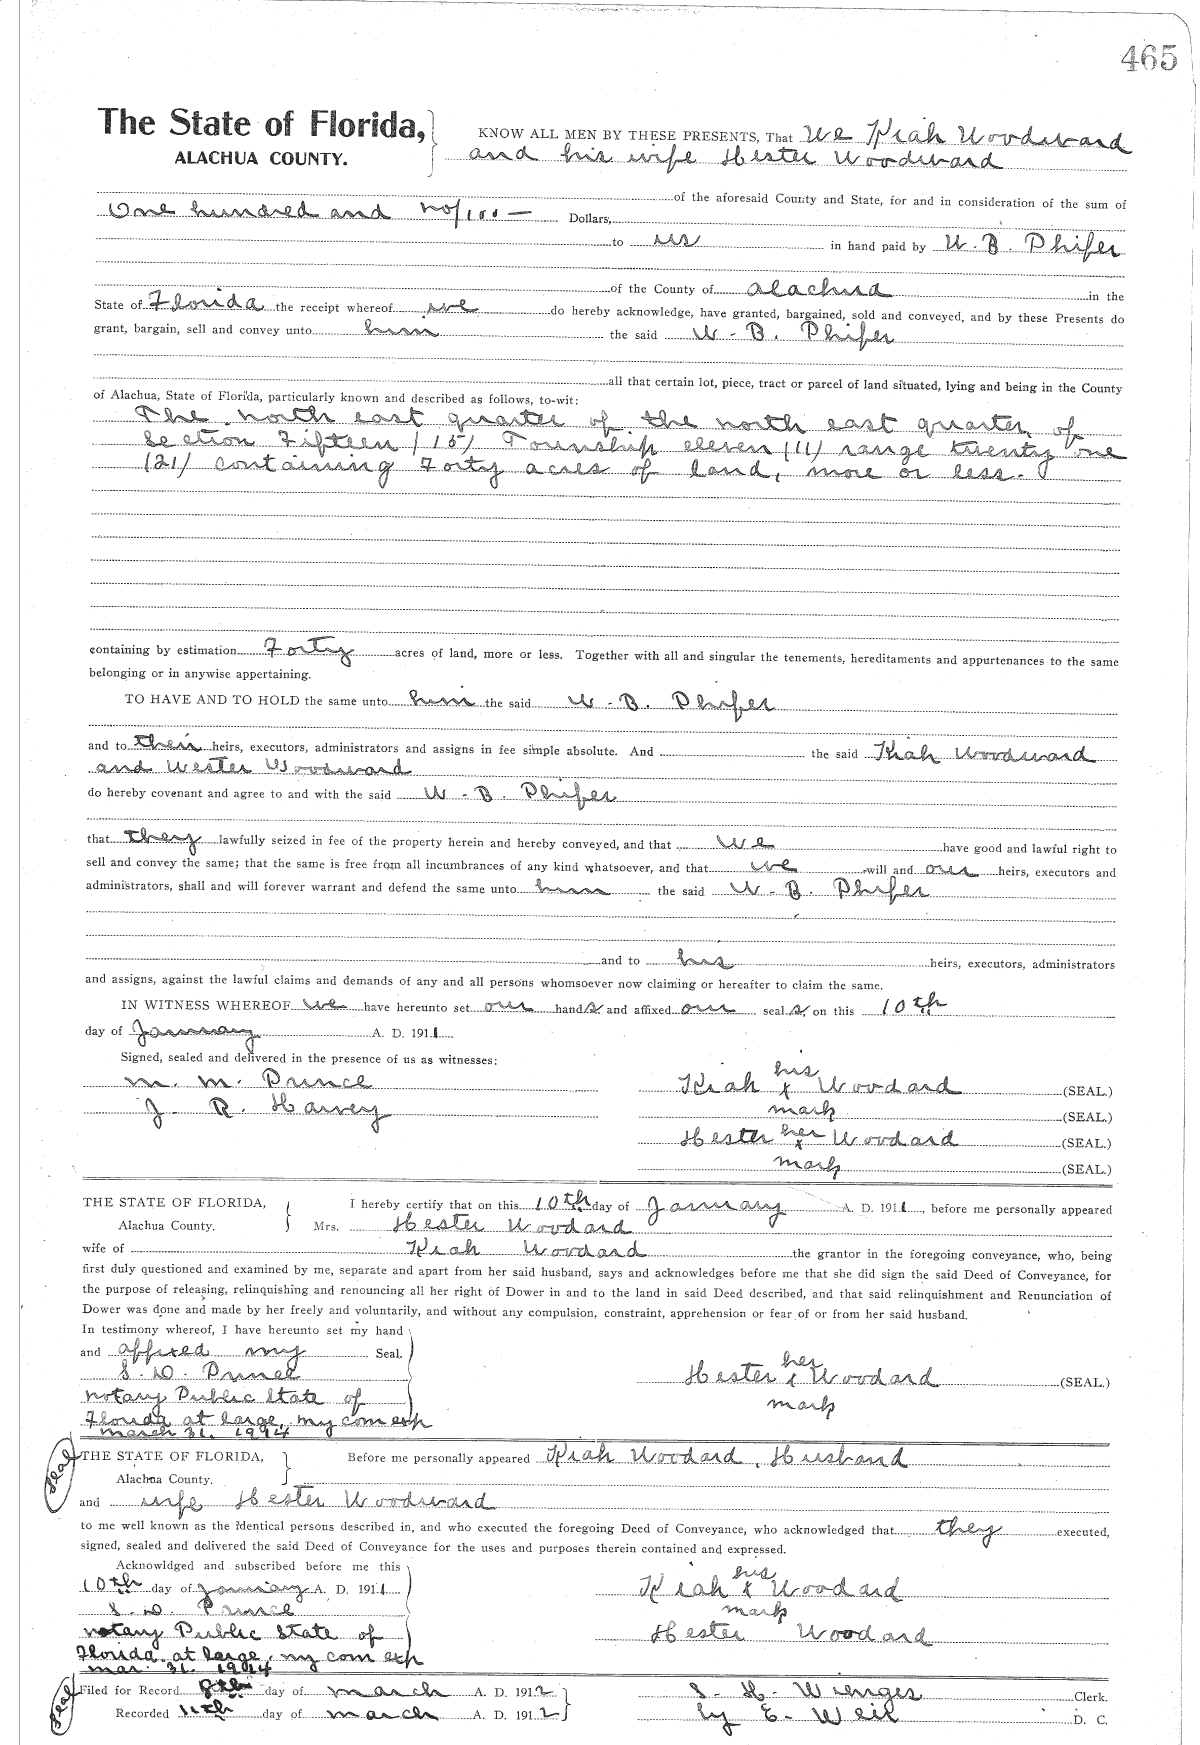 465
The State of Florida, KNOW ALL MEN BY THESE PRESENTS, That We Kiah Woodward
ALACHUA COUNTY. and his wife Hester Woodward
of the aforesaid County and State, for and in consideration of the sum of
One hundred and no/100 — Dollars,
to us in hand paid by W. B. Phifer
of the County of Alachua in the
State of Florida the receipt whereof we do hereby acknowledge, have granted, bargained, sold and conveyed, and by these Presents do
grant, bargain, sell and convey unto him the said W. B. Phifer
all that certain lot, piece, tract or parcel of land situated, lying and being in the County
of Alachua, State of Florida, particularly known and described as follows, to-wit:
The north east quarter of the north east quarter of
Section Fifteen (15) Township eleven (11) range twenty one
(21) containing Forty acres of land, more or less.
containing by estimation Forty acres of land, more or less. Together with all and singular the tenements, hereditaments and appurtenances to the same
belonging or in anywise appertaining.
TO HAVE AND TO HOLD the same unto him the said W. B. Phifer
and to their heirs, executors, administrators and assigns in fee simple absolute. And the said Kiah Woodward
and Wester Woodward
do hereby covenant and agree to and with the said W. B. Phifer
that they lawfully seized in fee of the property herein and hereby conveyed, and that we have good and lawful right to
sell and convey the same; that the same is free from all incumbrances of any kind whatsoever, and that we will and our heirs, executors and
administrators, shall and will forever warrant and defend the same unto him the said W. B. Phifer
and to his heirs, executors, administrators
and assigns, against the lawful claims and demands of any and all persons whomsoever now claiming or hereafter to claim the same.
IN WITNESS WHEREOF we have hereunto set our hands and affixed our seals, on this 10th
day of January A. D. 1911
Signed, sealed and delivered in the presence of us as witnesses:
M. M. Prince
J. R. Harvey
his
Kiah x Woodard (SEAL.)
mark (SEAL.)
Hester her x Woodard (SEAL.)
mark (SEAL.)
THE STATE OF FLORIDA, I hereby certify that on this 10th day of January A. D. 1911, before me personally appeared
Alachua County. Mrs. Hester Woodard
wife of Kiah Woodard the grantor in the foregoing conveyance, who, being
first duly questioned and examined by me, separate and apart from her said husband, says and acknowledges before me that she did sign the said Deed of Conveyance, for
the purpose of releasing, relinquishing and renouncing all her right of Dower in and to the land in said Deed described, and that said relinquishment and Renunciation of
Dower was done and made by her freely and voluntarily, and without any compulsion, constraint, apprehension or fear of or from her said husband.
In testimony whereof, I have hereunto set my hand
and affixed my Seal.
S. D. Prince
Notary Public State of
Florida at large, my com exp
March 31. 1914
her
Hester x Woodard (SEAL.)
mark
Seal
THE STATE OF FLORIDA, Before me personally appeared Kiah Woodard, Husband
Alachua County.
and wife Hester Woodward
to me well known as the identical persons described in, and who executed the foregoing Deed of Conveyance, who acknowledged that they executed,
signed, sealed and delivered the said Deed of Conveyance for the uses and purposes therein contained and expressed.
Acknowldged and subscribed before me this
10th day of January A. D. 1911
S. D. Prince
Notary Public State of
Florida at large, my com exp
Mar. 31. 1914
his
Kiah x Woodard
mark
Hester Woodard
Seal
Filed for Record 8th day of March A. D. 1912 S. H. Wienges Clerk.
Recorded 11th day of March A. D. 1912 by E. Weil D. C.